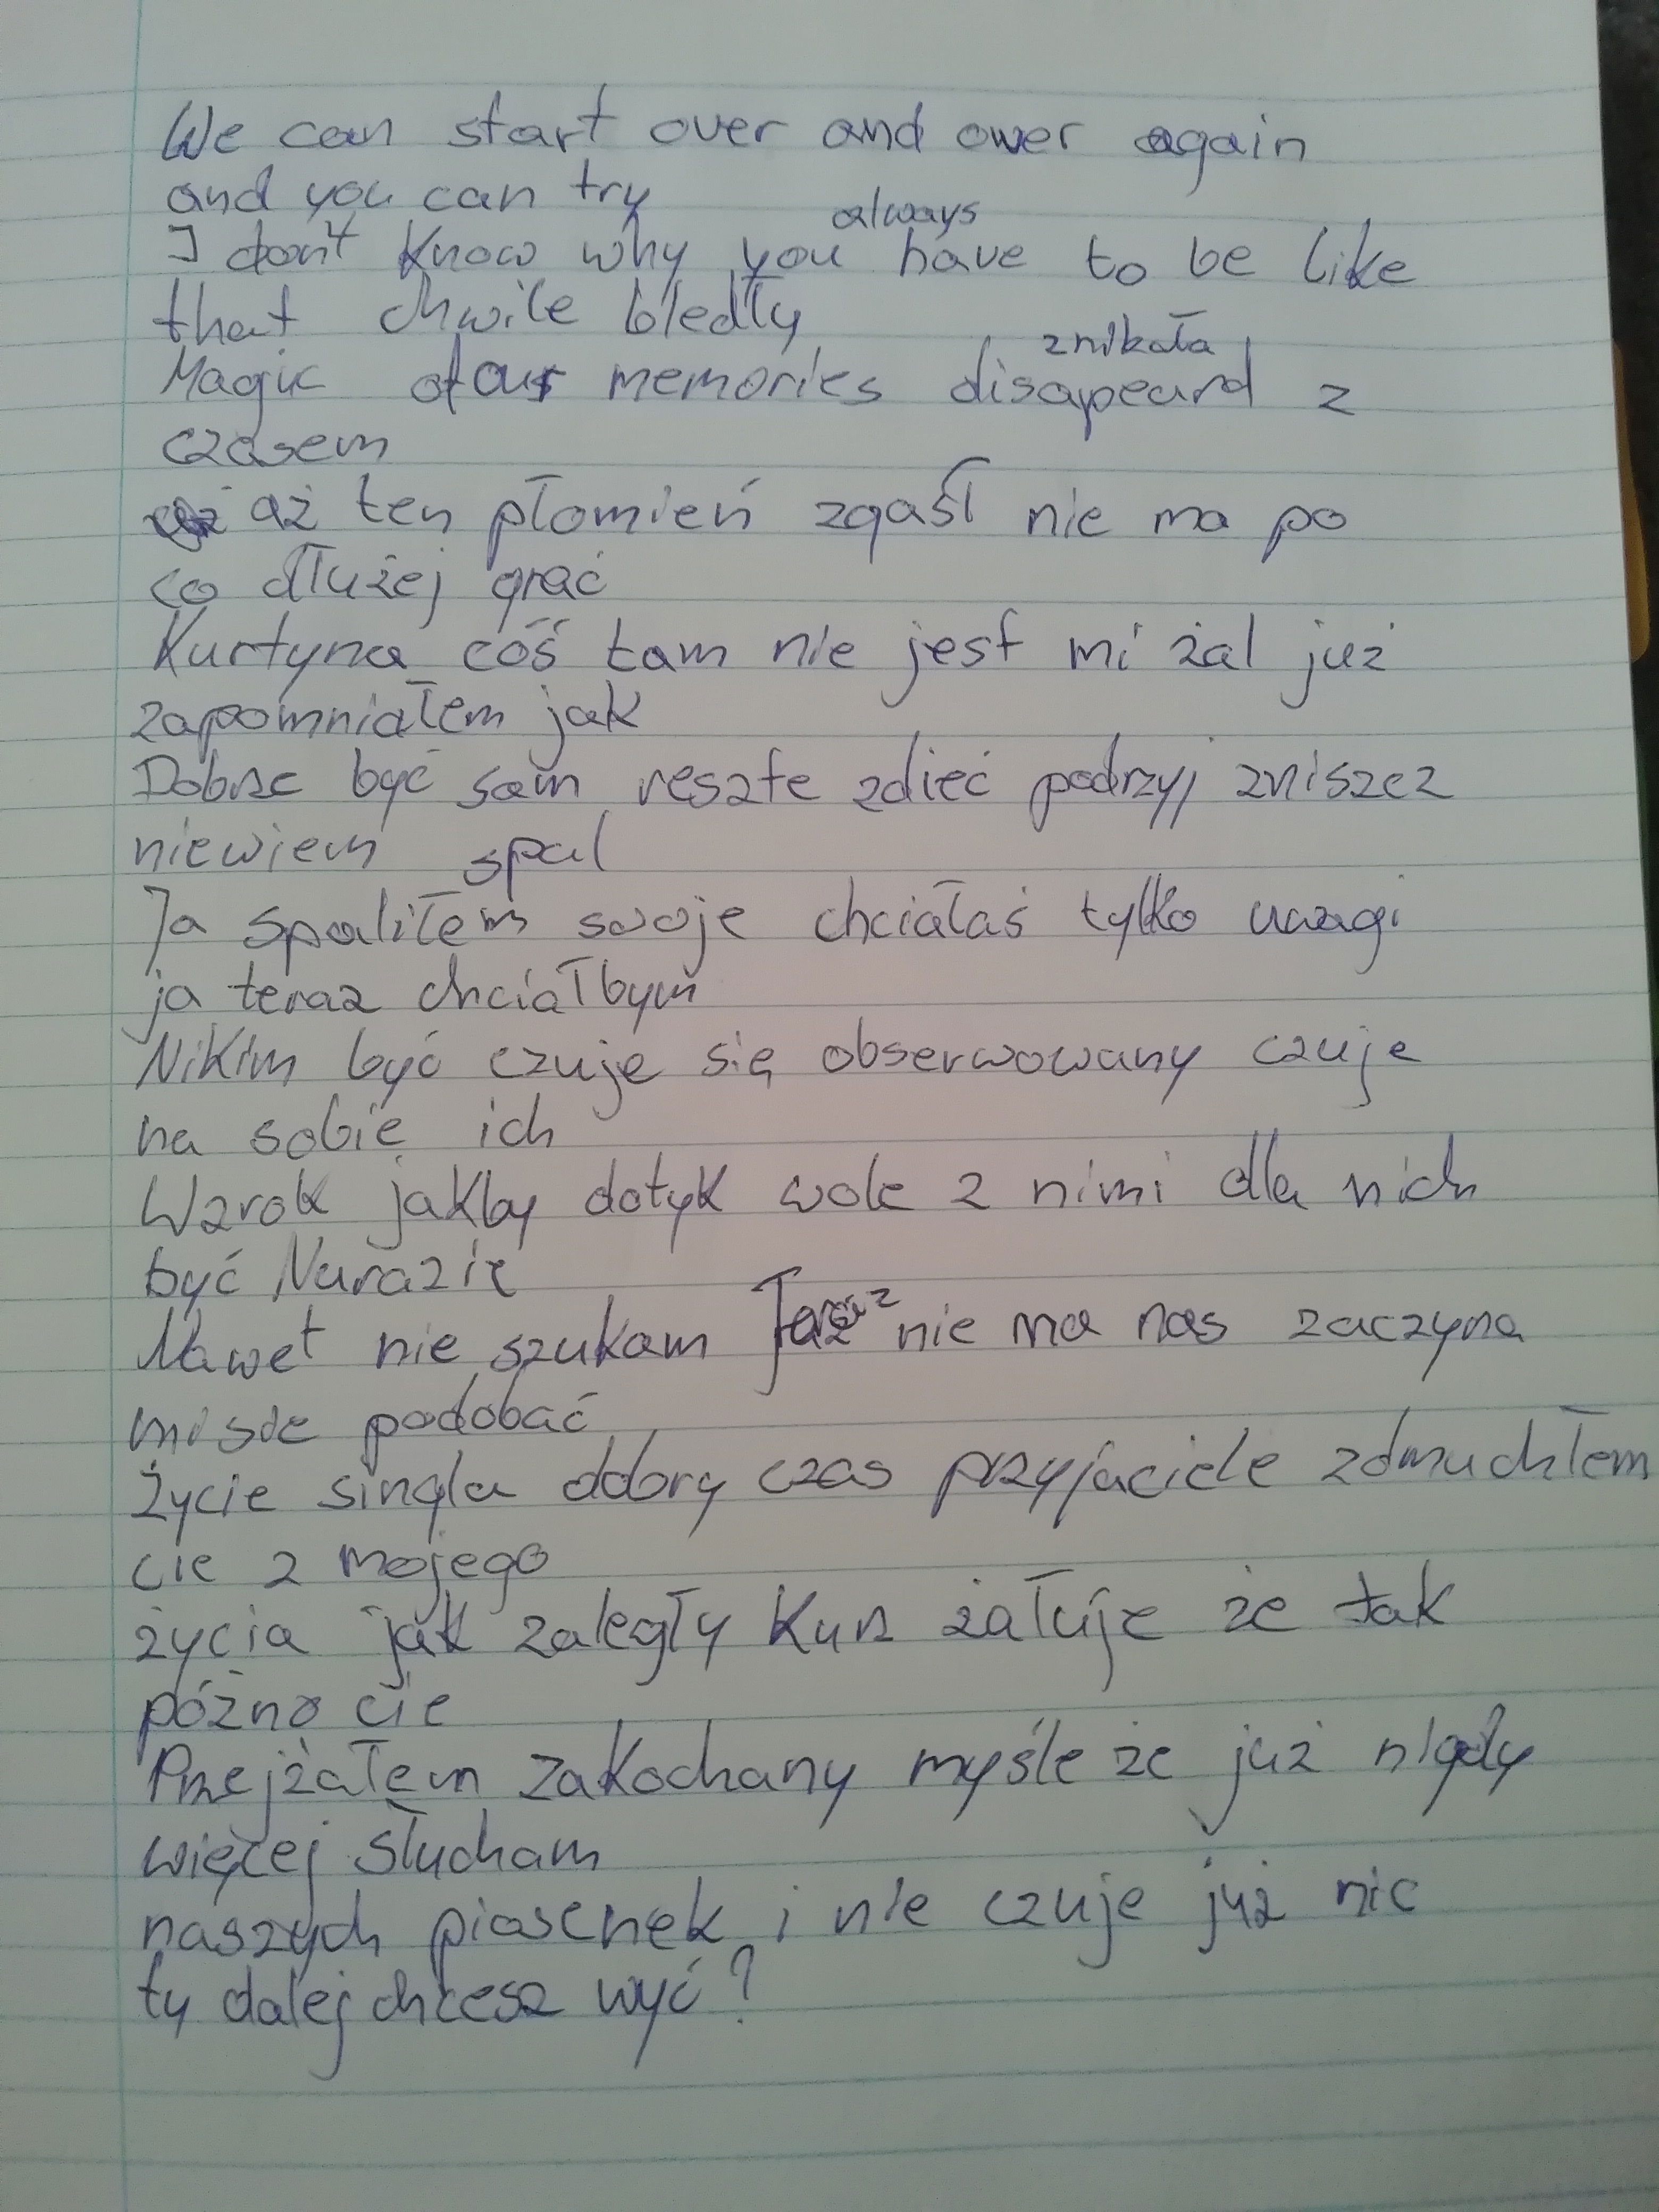 We can start over and ower again
and you can try
always
I don't know why you have to be like
that chwile bledły
znikała
Magic of our memories disapeard z
czasem
aż ten płomień zgasł nie ma po
co dłużej grać
Kurtyna coś tam nie jest mi żal już
zapomniałem jak
Dobrze być sam reszte zdieć podrzyj zniszcz
niewiem spal
Ja spaliłem swoje chciałaś tylko uwagi
ja teraz chciałbym
Nikim być czuje się obserwowany czuje
na sobie ich
Wzrok jakby dotyk wole z nimi dla nich
być Narazie
Nawet nie szukam Teraz nie ma nas zaczyna
mi sie podobać
Życie singla dobry czas przyjaciele zdmuchłem
cie z mojego
życia jak zaległy kurz żałuje że tak
późno cie
Przejżałem zakochany myśle że już nigdy
więcej słucham
naszych piosenek i nie czuje już nic
ty dalej chcesz wyć?